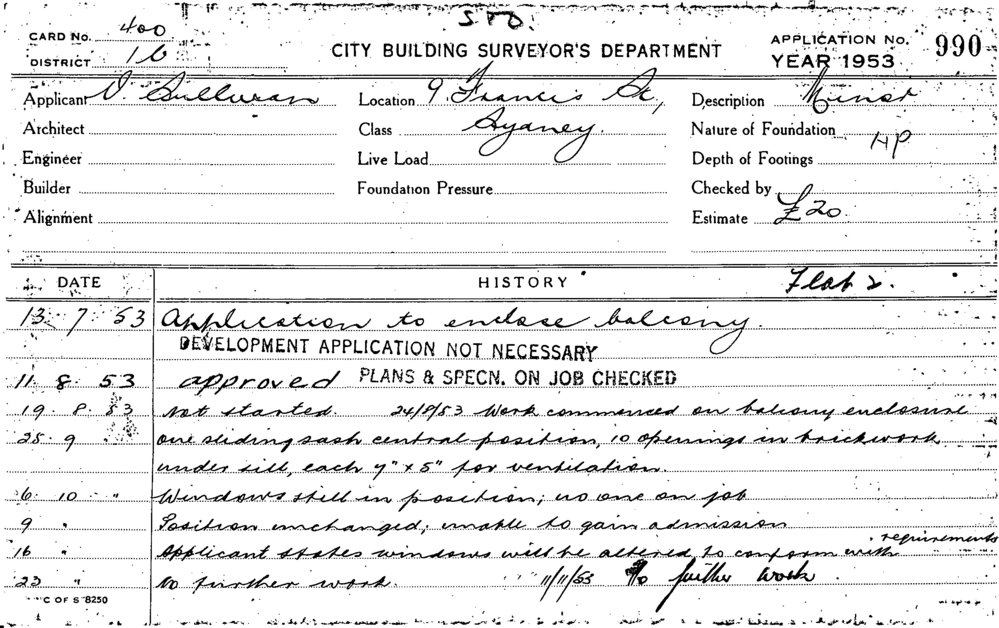 S T D.
CARD No. 400
DISTRICT 16
CITY BUILDING SURVEYOR'S DEPARTMENT
APPLICATION No. 990
YEAR 1953
Applicant V Sullivan Location 9 Francis St, Description Minor
Architect Class Sydney. Nature of Foundation HP
Engineer Live Load Depth of Footings
Builder Foundation Pressure Checked by
Alignment Estimate £20
DATE HISTORY Flat 2.
13 7 53 Application to enclose balcony.
DEVELOPMENT APPLICATION NOT NECESSARY
11 8 53 approved PLANS & SPECN. ON JOB CHECKED
19 8 53 Not started. 24/8/53 Work commenced on balcony enclosure
25 9 one sliding sash central position, 10 openings in brickwork
under sill, each 9" x 5" for ventilation.
6 10 " Windows still in position; no one on job
9 " Position unchanged; unable to gain admission
16 " Applicant states windows will be altered to conform with requirements
23 " No further work. 11/11/53 No further work.
C OF S 8250